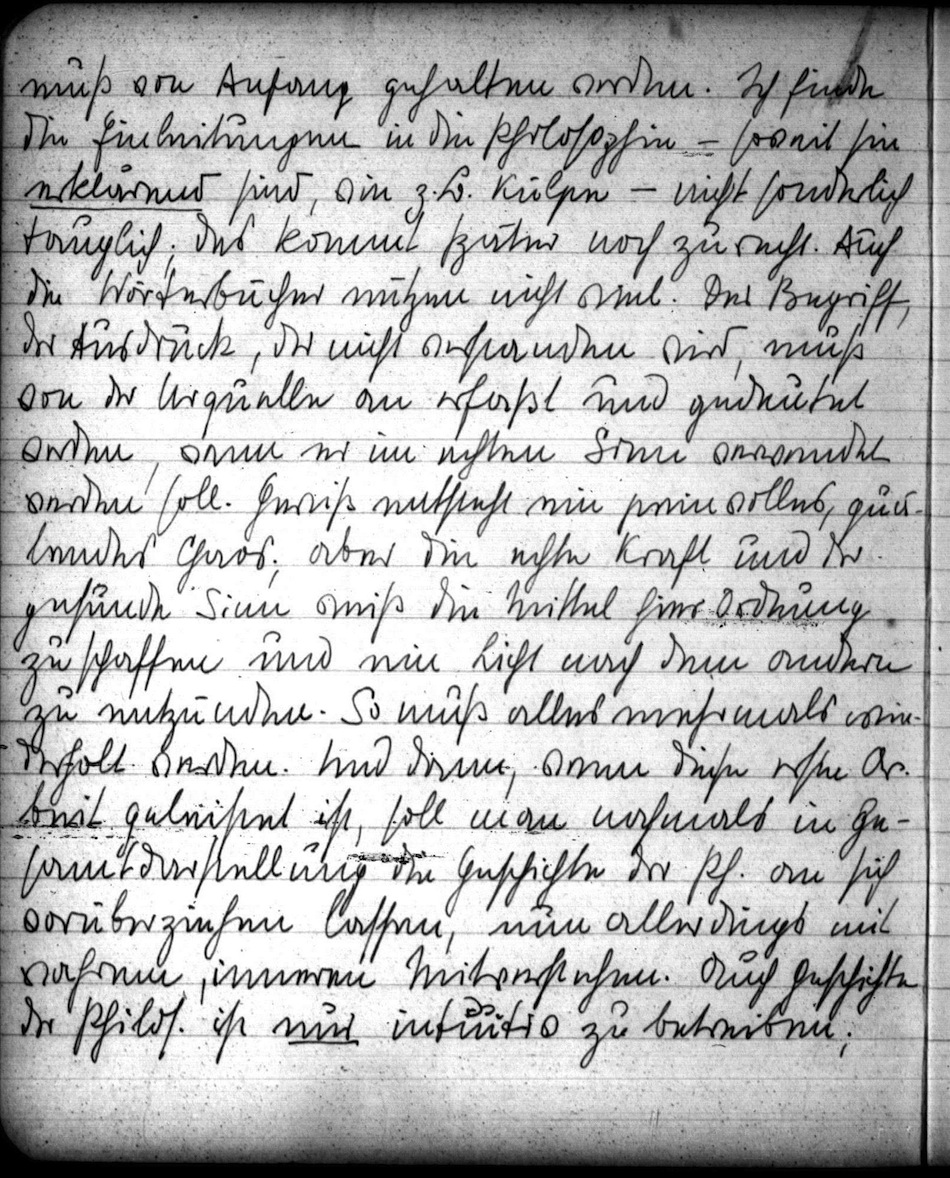 muß von Anfang gehalten werden. Ich finde
die Einleitungen in die Philosophie – soweit sie
erklärend sind, wie z.B. Külpe – nicht sonderlich
tauglich; das kommt später noch zurecht. Auch
die Wörterbücher nützen nicht viel. Der Begriff,
der Ausdruck, der nicht verstanden wird, muß
von der Urquelle an erfaßt und gedeutet
werden, wenn er im echten Sinn verwendet
werden soll. Gewiß entsteht ein peinvolles, quä-
lendes Chaos; aber die echte Kraft und der
gesunde Sinn weiß die Mittel hier Ordnung
zu schaffen und ein Licht nach dem andern
zu entzünden. So muß alles mehrmals wie-
derholt werden. Und dann, wenn diese erste Ar-
beit geleistet ist, soll man nochmals in Ge-
samtdarstellung die Geschichte der Ph. an sich
vorüberziehen lassen, nun allerdings mit
wahrem, inneren Mitverstehen. Auch Geschichte
der Philos. ist nur intuitiv zu betreiben;